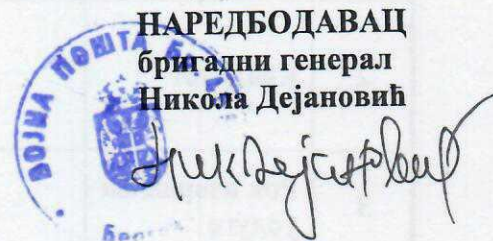 НАРЕДБОДАВАЦ
бригадни генерал
Никола Дејановић
ВОЈНА ПОШТА